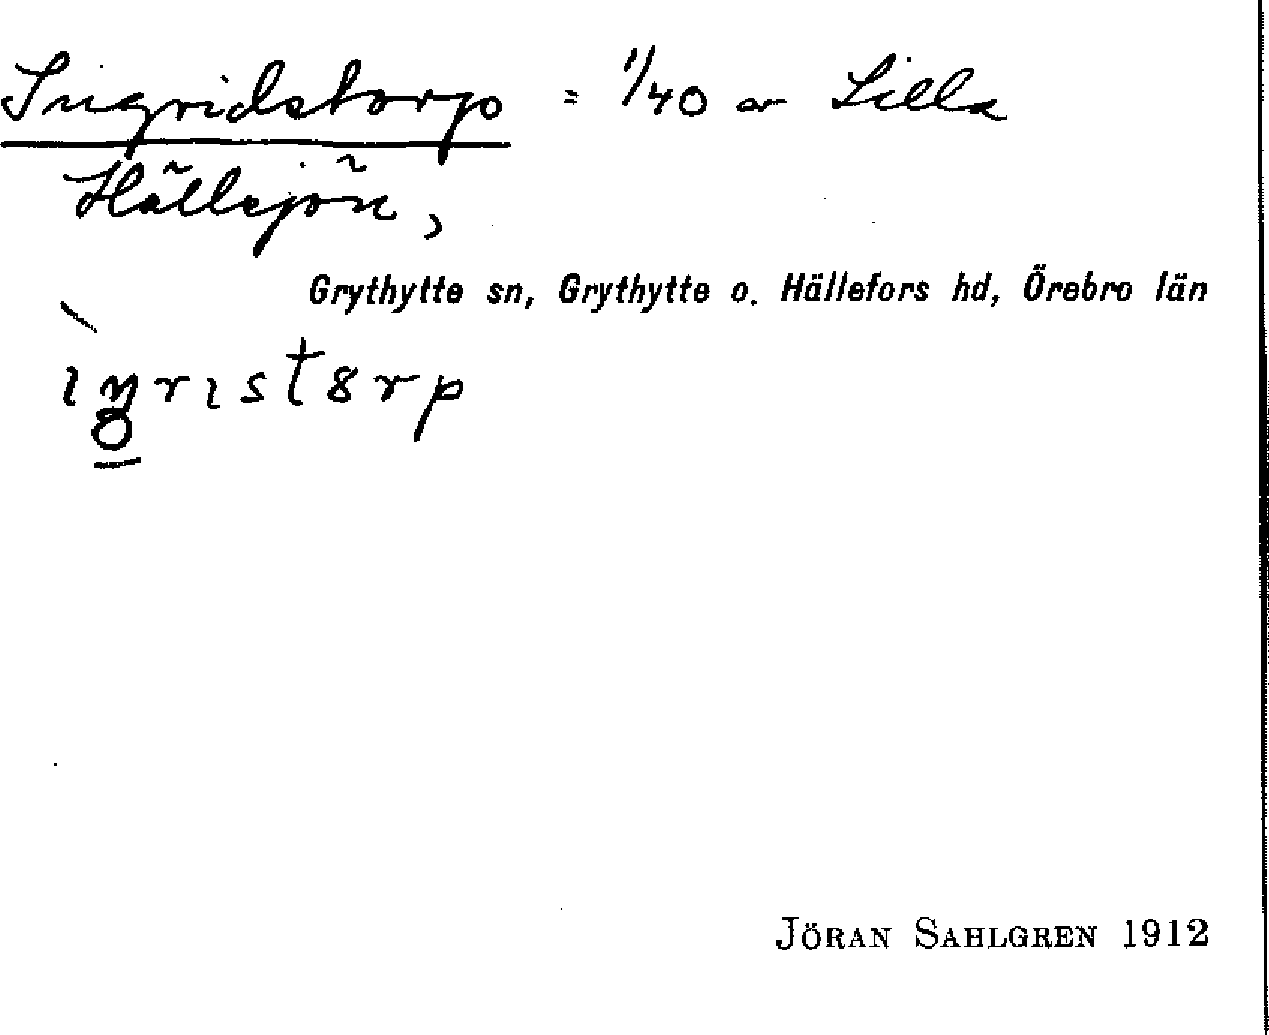 Ingridstorp = 1/40 av Lilla
Hällsjön,
Grythytte sn, Grythytte o. Hällefors hd, Örebro län
JÖRAN SAHLGREN 1912